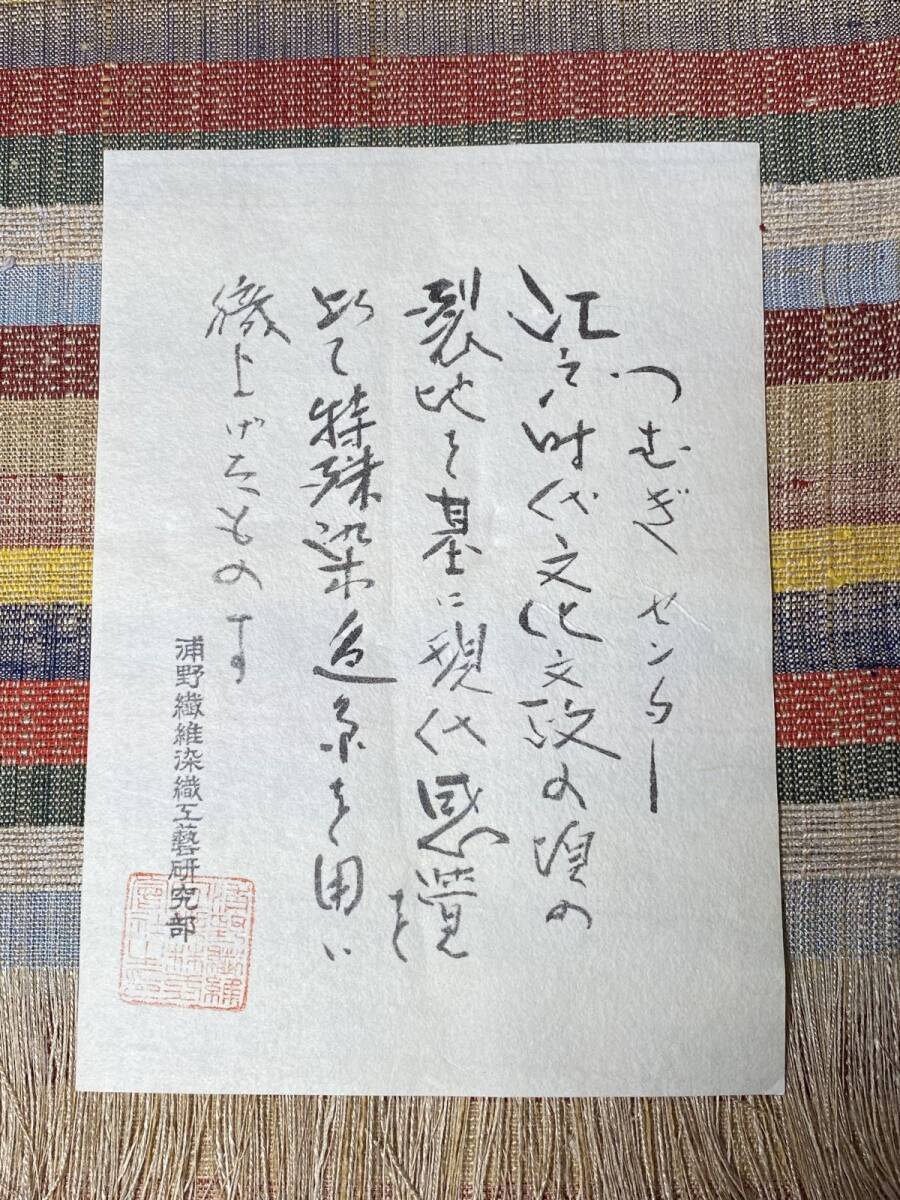 つむぎセンター
江戸時代文化文政の頃の
裂地を基に現代感覚を
以て特殊染色糸を用い
織上げたものです
浦野繊維染織工藝研究部